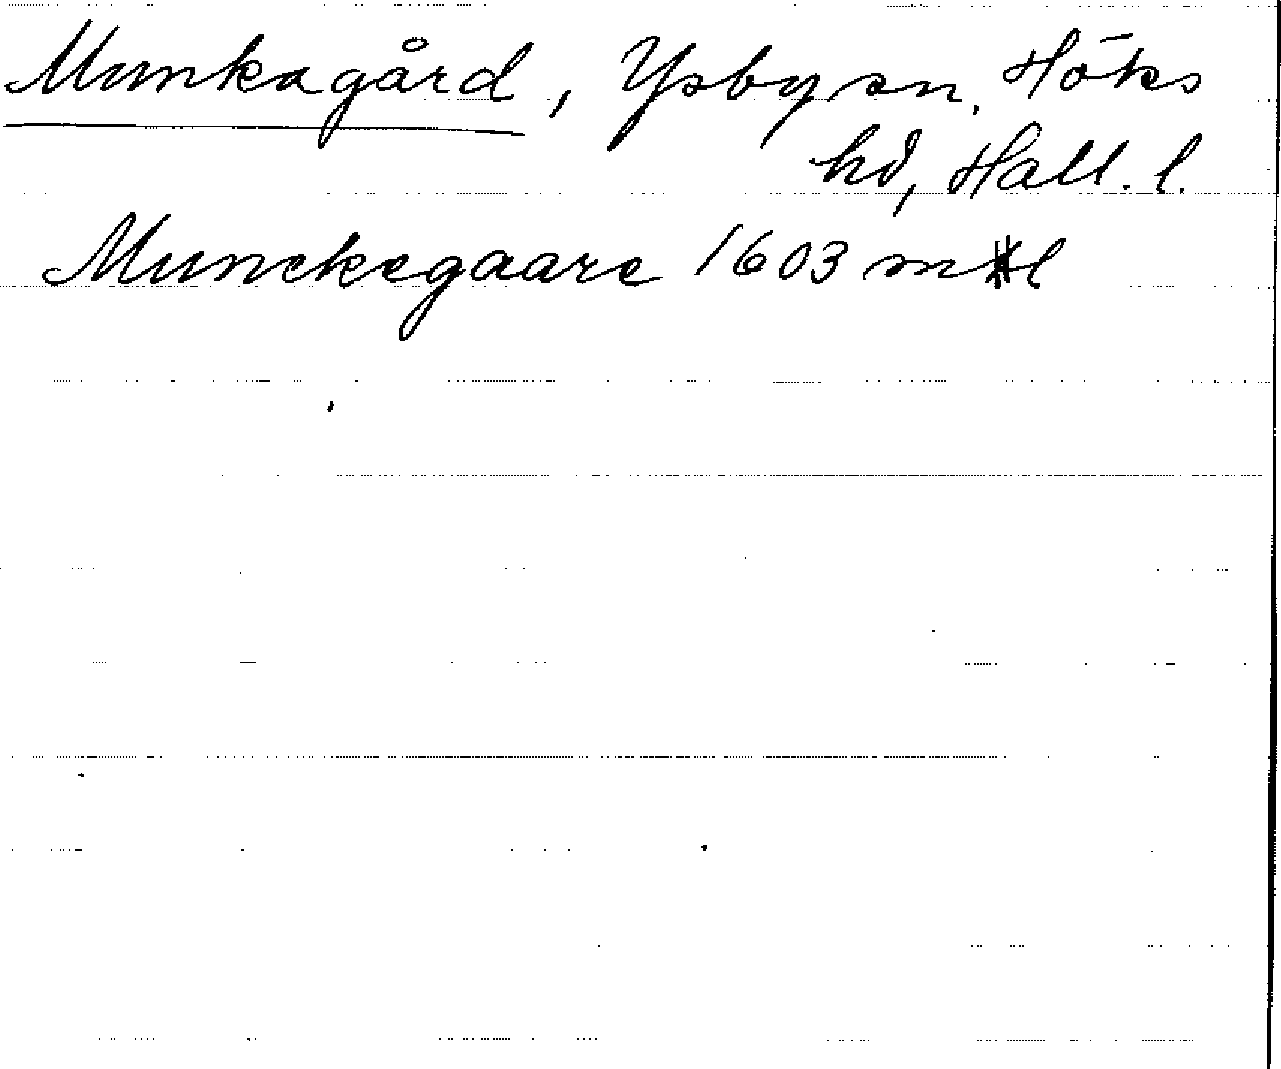 Munkagård, Ysby sn. Höks
hd, Hall. l.
Munckegaare 1603